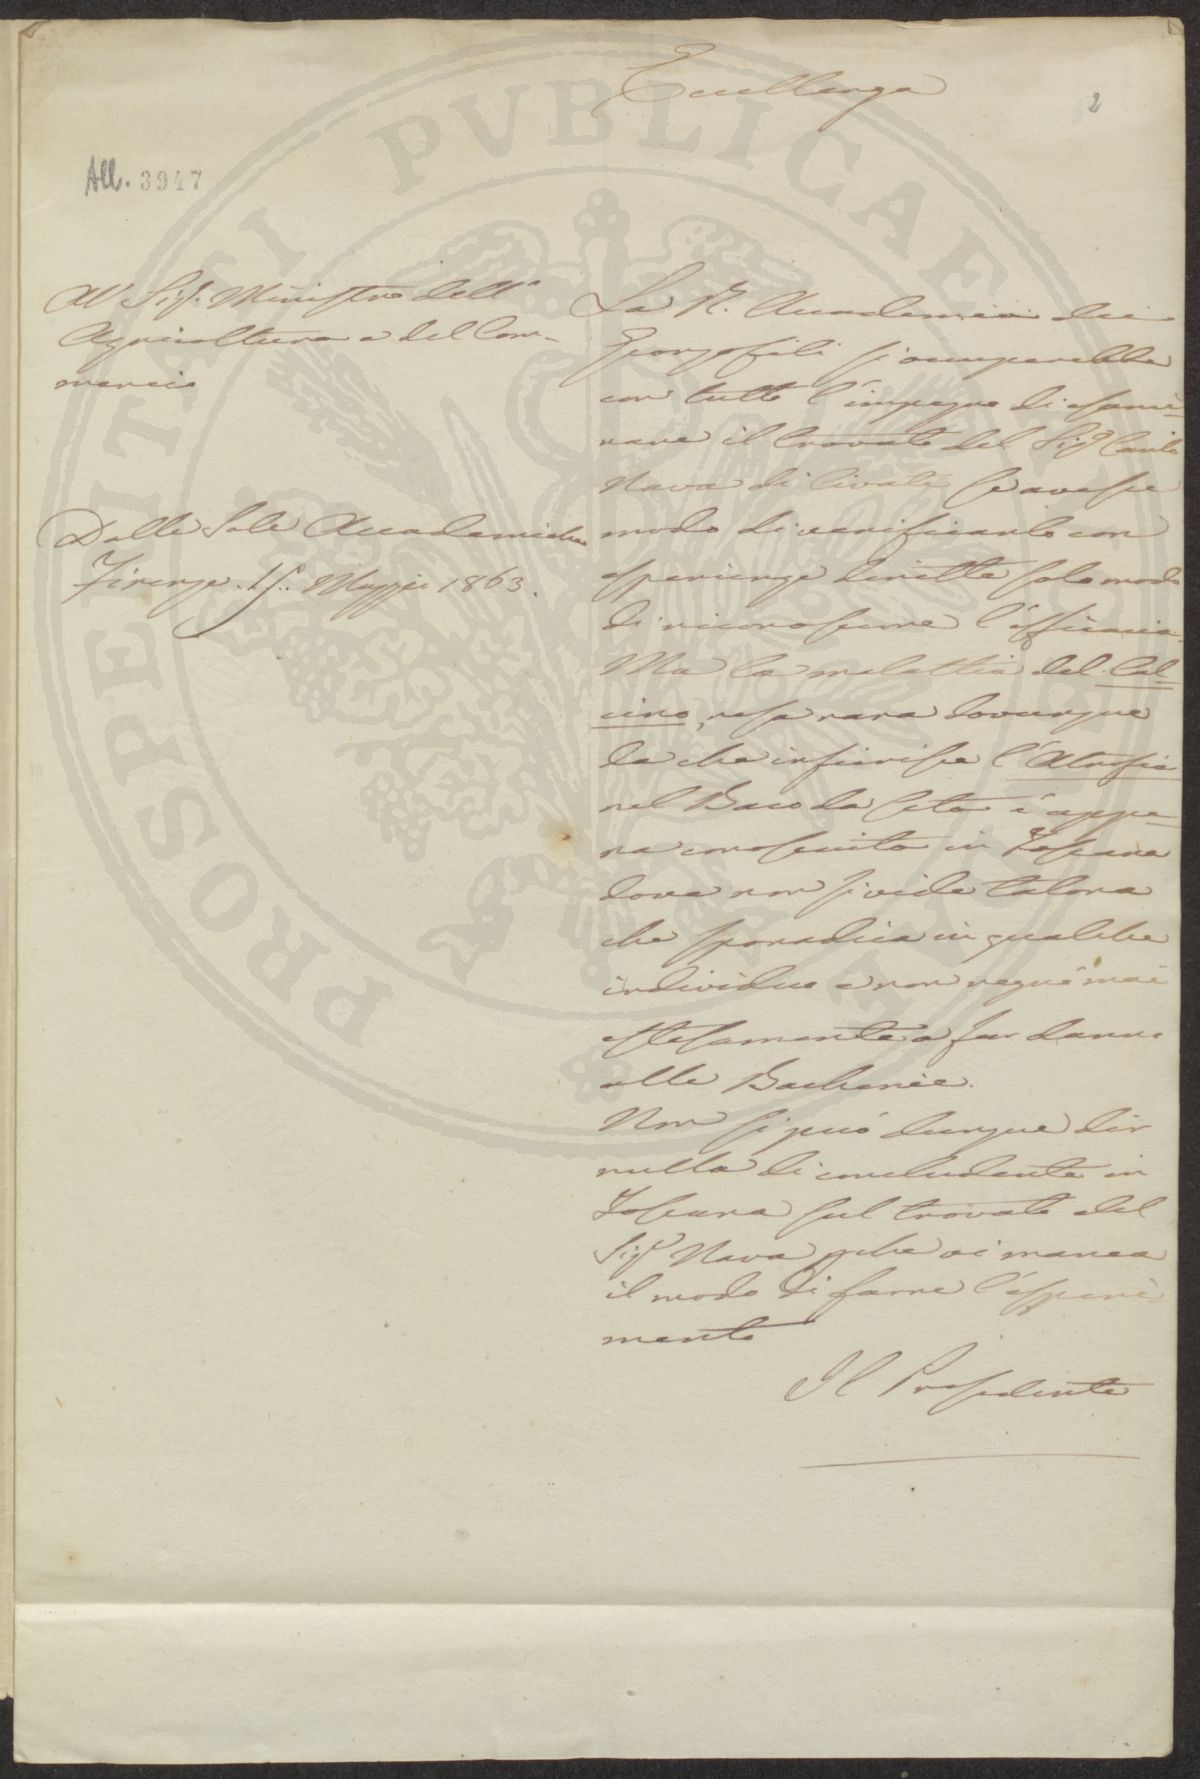 Eccellenza
2
All. 3947
Al Sigr. Ministro dell'
Agricoltura e del Com-
mercio
Dalle Sale Accademiche
Firenze. 15. Maggio 1863.
La R. Accademia dei
Georgofili s'occuperebbe
con tutto l'impegno di esami-
nare il trovato del Sigr Carlo
Nava di Civate se avesse
modo di verificarlo con
esperienze dirette solo modo
di riconoscerne l'efficacia.
Ma la malattia del Cal-
cino, resa rara dovunque
da che infierisce l'Atrofia
nel Baco da seta è appe-
na conosciuta in Toscana
dove non si vide talora
che sporadica in qualche
individuo e non regnò mai
estesamente a far danno
alle Bacherie.
Non si può dunque dir
nulla di concludente in
Toscana sul trovato del
Sigr Nava, che vi manca
il modo di farne l'esperi-
mento
Il Presidente
PROSPERITATI PVBLICAE